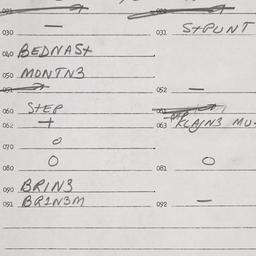 030 — 031 STPUNT
040 BEDNAST
050 MONTN3
052 —
060 STEP
062 + 063 STEP KLAJN3 MU-
070 o
080 O 081 O
090 BRIN3
091 BRIN3M 092 —